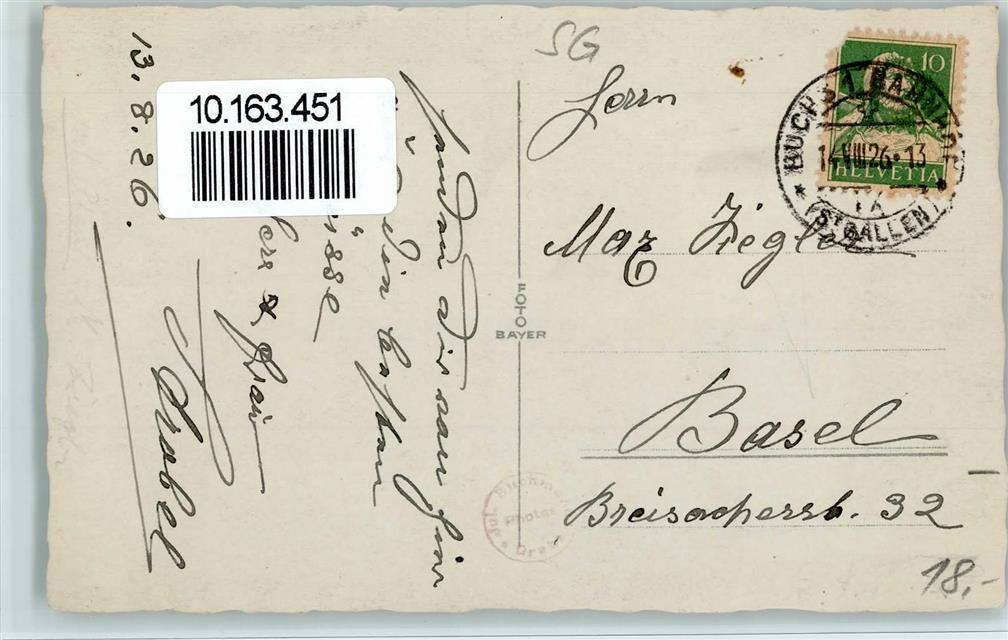 13.8.26.
10.163.451
senden Dir von hier
die besten
üsse
hers & Frau
Strobel
SG
Herrn
Max Ziegler
Basel
Breisacherstr. 32
18,-
FOTO
BAYER
10
HELVETIA
BUCHS BAHNHOF
14.VIII.26.13
(ST. GALLEN)
Jul. Buchm
Photo